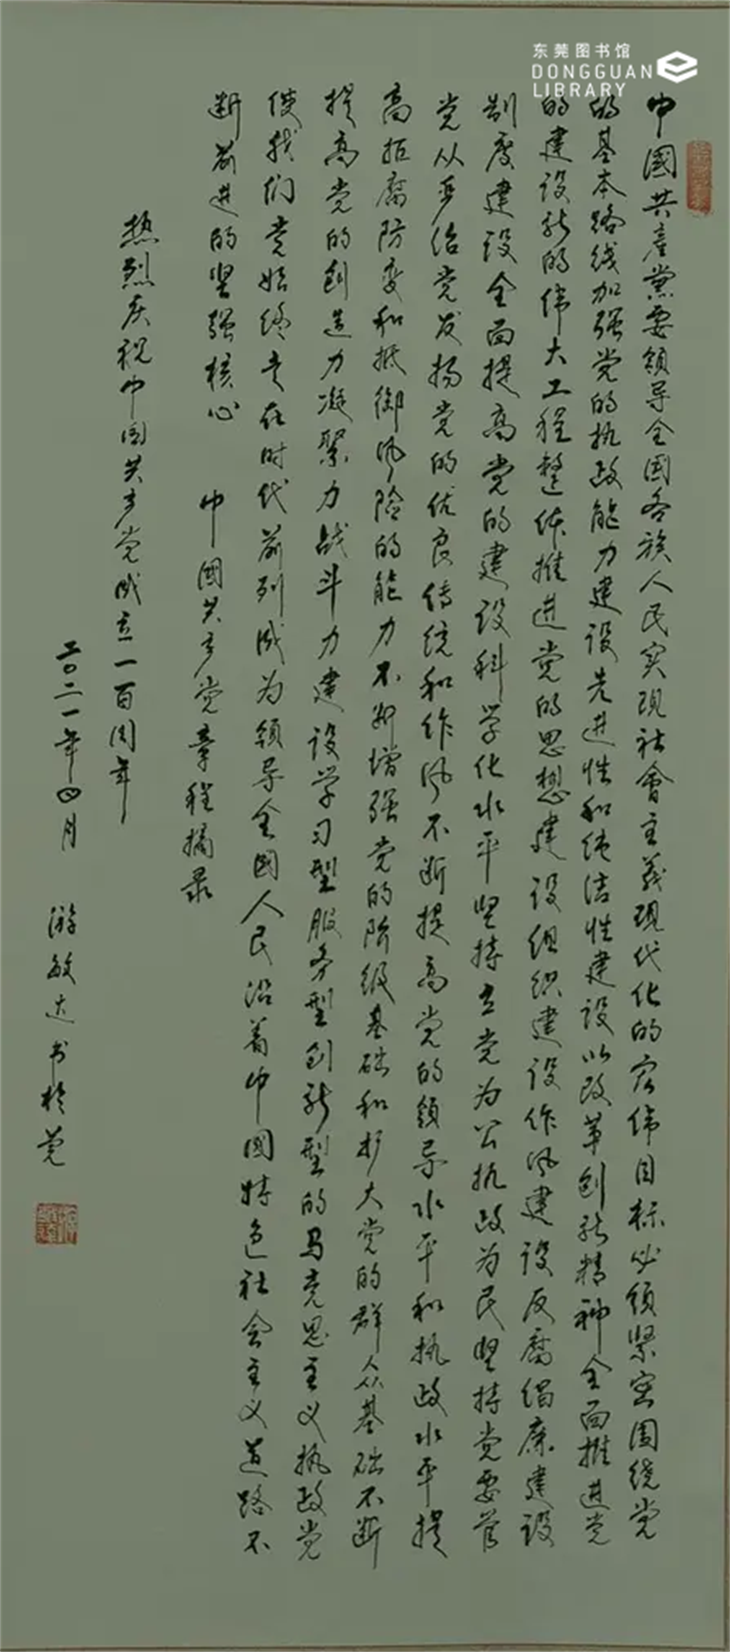 东莞图书馆
DONGGUAN
LIBRARY
中國共產黨要领导全国各族人民实现社會主義现代化的宏伟目标必须紧密围绕党
的基本路线加强党的执政能力建设先进性和纯洁性建设以改革创新精神全面推进党
的建设新的伟大工程整体推进党的思想建设组织建设作风建设反腐倡廉建设
制度建设全面提高党的建设科学化水平坚持立党为公执政为民坚持党要管
党从严治党发扬党的优良传统和作风不断提高党的领导水平和执政水平提
高拒腐防变和抵御风险的能力不断增强党的阶级基础和扩大党的群众基础不断
提高党的创造力凝聚力战斗力建设学习型服务型创新型的马克思主义执政党
使我们党始终走在时代前列成为领导全國人民沿着中國特色社会主义道路不
断前进的坚强核心
中國共产党章程摘录
热烈庆祝中国共产党成立一百周年
二〇二一年四月 游敏达书于莞